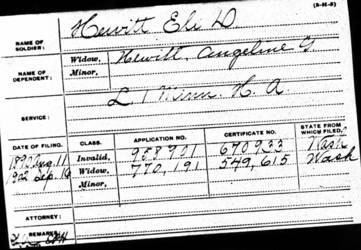 (3-H-8)
Hewitt Eli D.
NAME OF SOLDIER:
NAME OF DEPENDENT:
Widow, Hewitt, Angeline G
Minor,
SERVICE: L 1 Minn. H. A.
DATE OF FILING. CLASS. APPLICATION NO. CERTIFICATE NO. STATE FROM WHICH FILED.
1890 Aug. 11 Invalid, 958901 670933 Wash
1902 Sep. 16 Widow, 770,191 549,615 Wash
Minor,
ATTORNEY:
REMARKS: